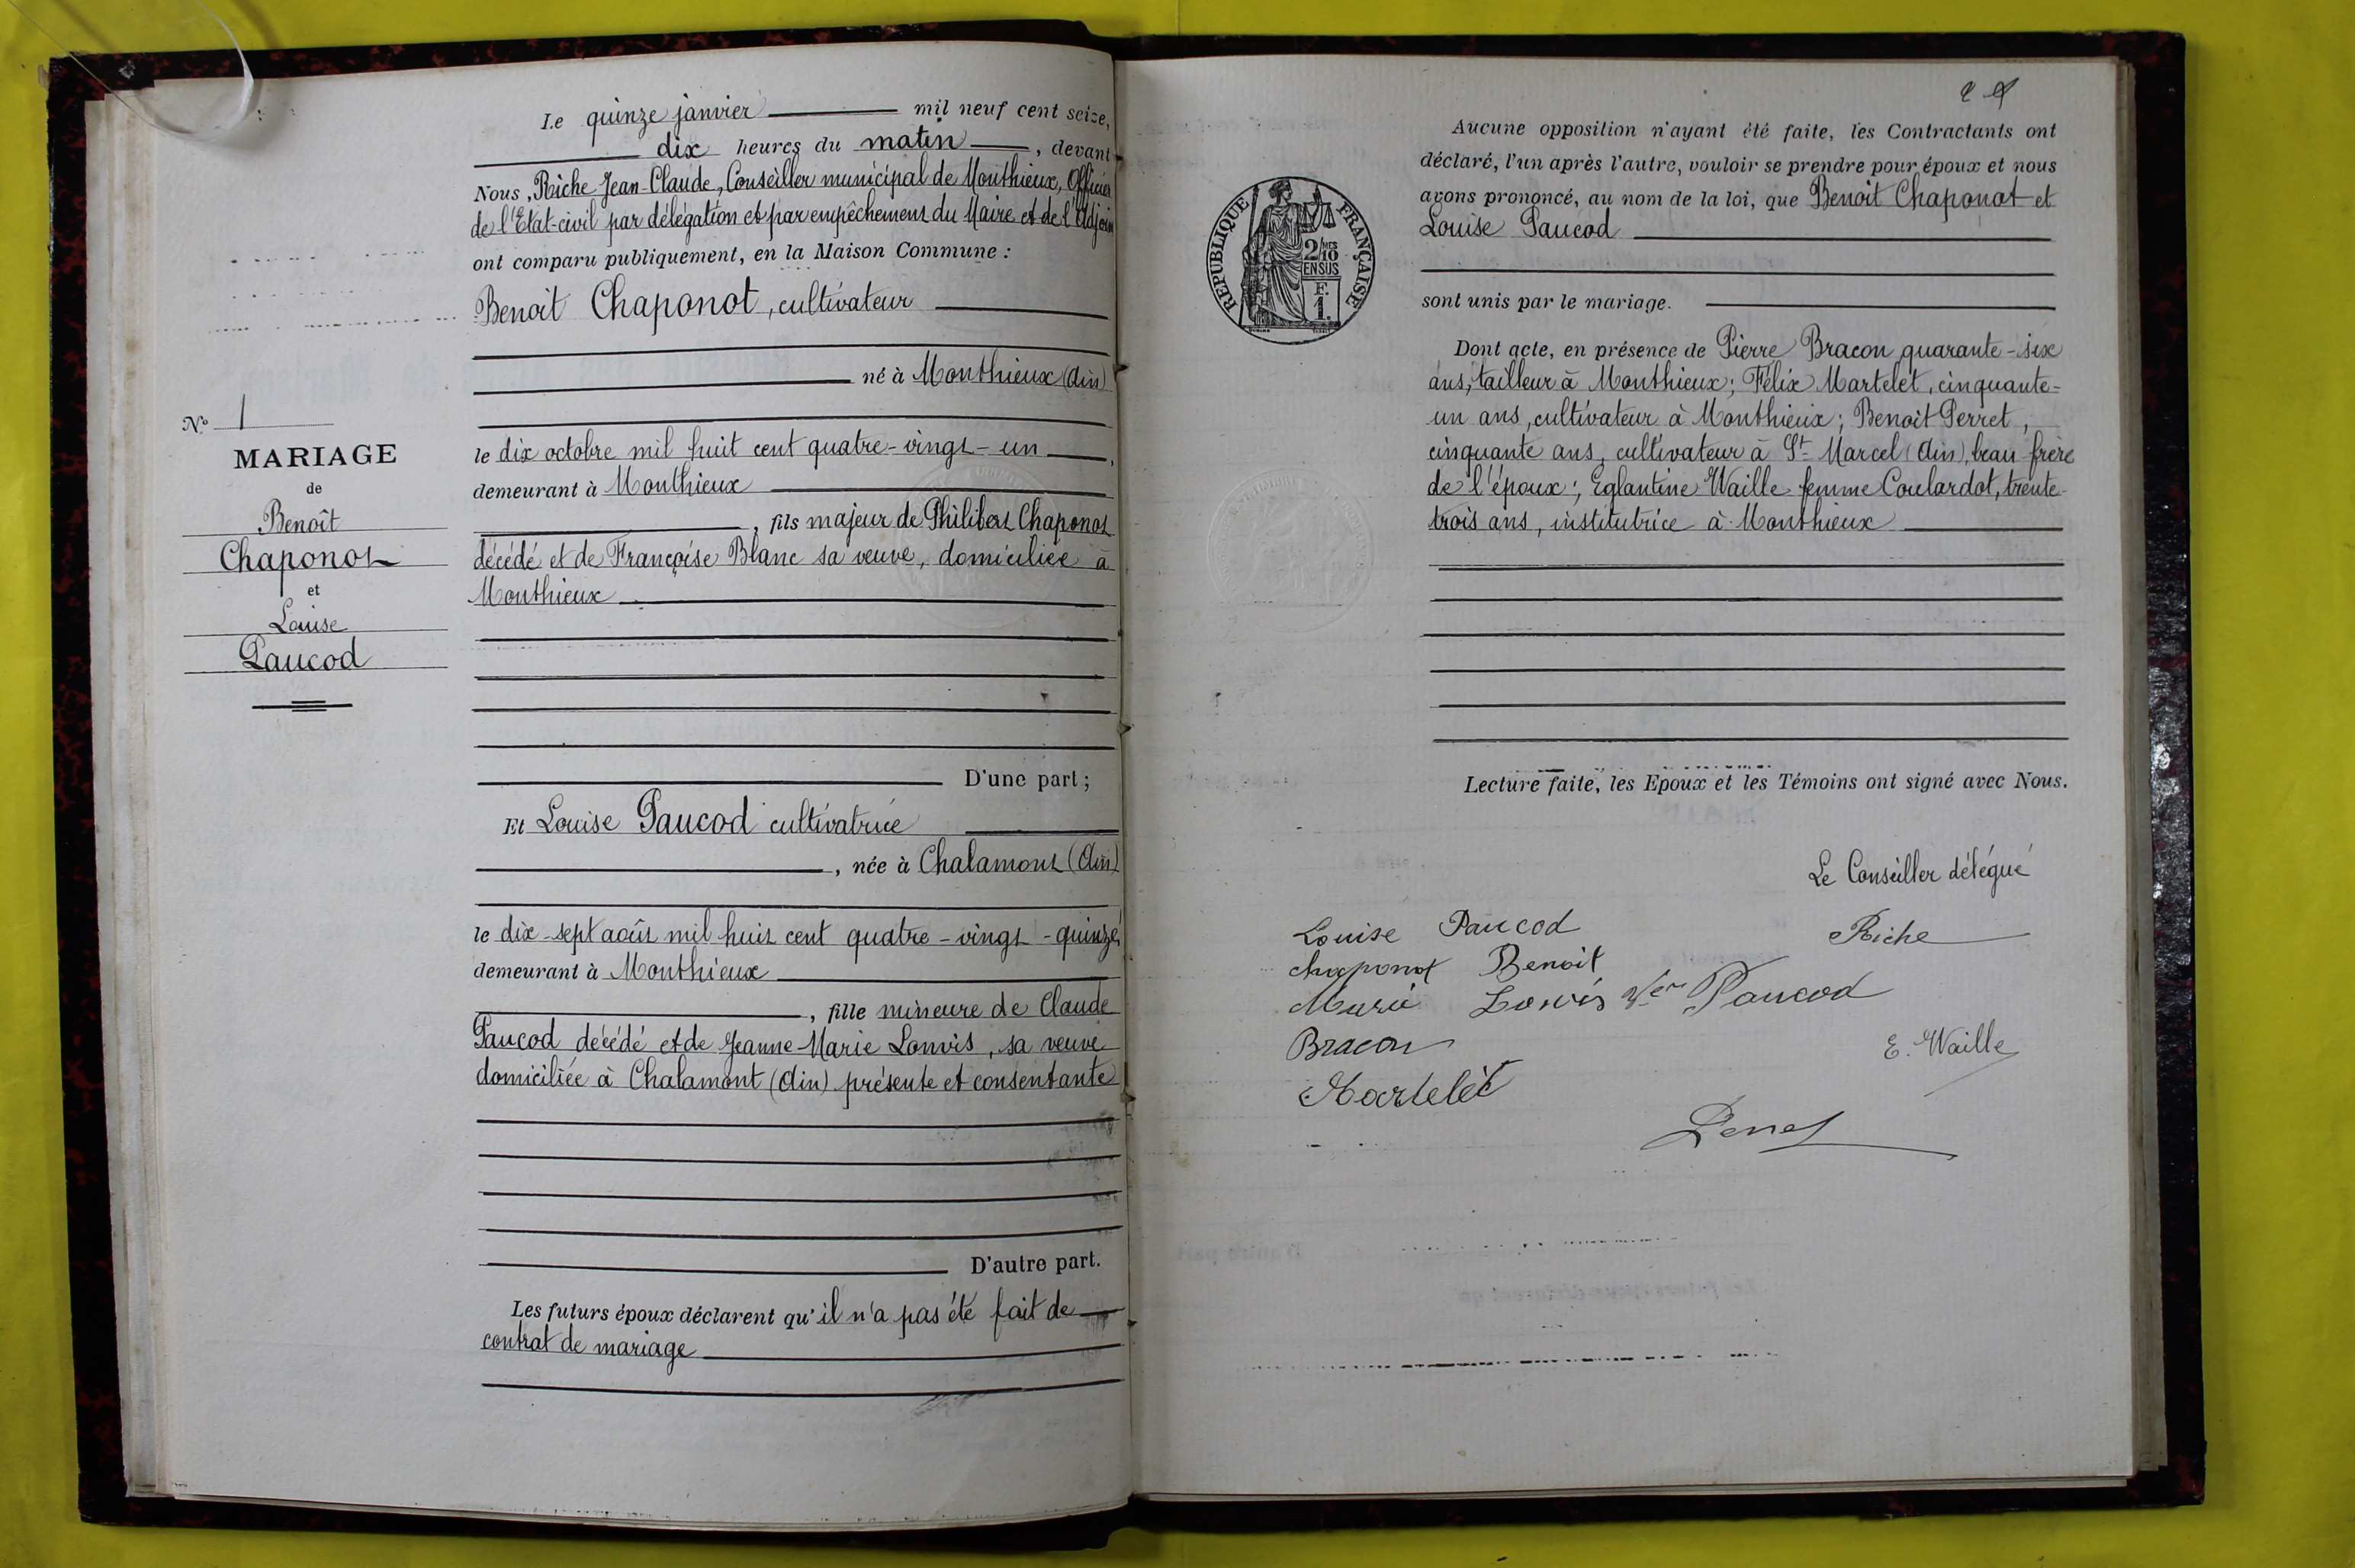 Le quinze janvier mil neuf cent seize,
dix heures du matin, devant
Nous, Riche Jean-Claude, Conseiller municipal de Monthieux, Officier
de l'Etat-civil par délégation et par empêchement du Maire et de l'Adjoin
ont comparu publiquement, en la Maison Commune :
Benoit Chaponot, cultivateur
né à Monthieux (Ain)
le dix octobre mil huit cent quatre-vingt-un,
demeurant à Monthieux
, fils majeur de Philibert Chaponot
décédé et de Françoise Blanc sa veuve, domiciliée à
Monthieux
D'une part ;
Et Louise Paucod cultivatrice
, née à Chalamont (Ain)
le dix-sept août mil huit cent quatre-vingt-quinze,
demeurant à Monthieux
, fille mineure de Claude
Paucod décédé et de Jeanne-Marie Lonvis, sa veuve
domiciliée à Chalamont (Ain) présente et consentante
D'autre part.
Les futurs époux déclarent qu'il n'a pas été fait de
contrat de mariage
No 1
MARIAGE
de
Benoît
Chaponot
et
Louise
Paucod
Aucune opposition n'ayant été faite, les Contractants ont
déclaré, l'un après l'autre, vouloir se prendre pour époux et nous
avons prononcé, au nom de la loi, que Benoit Chaponot et
Louise Paucod
sont unis par le mariage.
Dont acte, en présence de Pierre Bracon quarante-six
ans, tailleur à Monthieux; Félix Martelet, cinquante-
un ans, cultivateur à Monthieux; Benoit Perret,
cinquante ans, cultivateur à St Marcel (Ain), beau-frère
de l'époux; Eglantine Waille femme Coulardot, trente-
trois ans, institutrice à Monthieux
Lecture faite, les Epoux et les Témoins ont signé avec Nous.
Le Conseiller délégué
Riche
Louise Paucod
chaponot Benoit
Marie Lonvis Vve Paucod
Bracon
E. Waille
Martelet
Perret
RÉPUBLIQUE FRANÇAISE
2/10MES
EN SUS
F.
1.